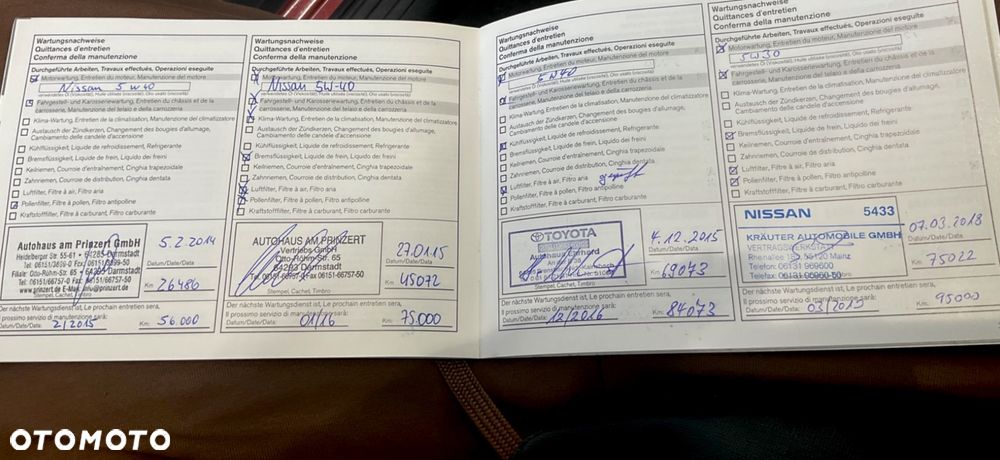 Wartungsnachweise
Quittances d'entretien
Conferma della manutenzione
Durchgeführte Arbeiten, Travaux effectués, Operazioni eseguite
Motorwartung, Entretien du moteur, Manutenzione del motore
Nissan 5W40
Fahrgestell- und Karosseriewartung, Entretien du châssis et de la
carrosserie, Manutenzione del telaio e della carrozzeria
Klima-Wartung, Entretien de la climatisation, Manutenzione del climatizzatore
Austausch der Zündkerzen, Changement des bougies d'allumage,
Cambiamento delle candele d'accensione
Kühlflüssigkeit, Liquide de refroidissement, Refrigerante
Bremsflüssigkeit, Liquide de frein, Liquido dei freni
Keilriemen, Courroie d'entraînement, Cinghia trapezoidale
Zahnriemen, Courroie de distribution, Cinghia dentata
Luftfilter, Filtre à air, Filtro aria
Pollenfilter, Filtre à pollen, Filtro antipolline
Kraftstofffilter, Filtre à carburant, Filtro carburante
Autohaus am Prinzert GmbH
Heidelberger Str. 55-61 • 64285 Darmstadt
Filiale: Otto-Röhm-Str. 65 • 64293 Darmstadt
Tel. 06151/66757-0 Fax 06151/66757-50
www.prinzert.de E-Mail: info@prinzert.de
Stempel, Cachet, Timbro
5.2.2014
Datum/Date/Data
Km: 26486
Der nächste Wartungsdienst ist, Le prochain entretien sera,
Il prossimo servizio di manutenzione sarà:
Datum/Date/Data: 2/2015 Km: 56.000
Wartungsnachweise
Quittances d'entretien
Conferma della manutenzione
Durchgeführte Arbeiten, Travaux effectués, Operazioni eseguite
Motorwartung, Entretien du moteur, Manutenzione del motore
Nissan 5W-40
Fahrgestell- und Karosseriewartung, Entretien du châssis et de la
carrosserie, Manutenzione del telaio e della carrozzeria
Klima-Wartung, Entretien de la climatisation, Manutenzione del climatizzatore
Austausch der Zündkerzen, Changement des bougies d'allumage,
Cambiamento delle candele d'accensione
Kühlflüssigkeit, Liquide de refroidissement, Refrigerante
Bremsflüssigkeit, Liquide de frein, Liquido dei freni
Keilriemen, Courroie d'entraînement, Cinghia trapezoidale
Zahnriemen, Courroie de distribution, Cinghia dentata
Luftfilter, Filtre à air, Filtro aria
Pollenfilter, Filtre à pollen, Filtro antipolline
Kraftstofffilter, Filtre à carburant, Filtro carburante
AUTOHAUS AM PRINZERT
Vertriebs GmbH
Otto-Röhm-Str. 65
64293 Darmstadt
Stempel, Cachet, Timbro
27.01.15
Datum/Date/Data
Km: 45072
Der nächste Wartungsdienst ist, Le prochain entretien sera,
Il prossimo servizio di manutenzione sarà:
Datum/Date/Data: 01/16 Km: 75.000
Wartungsnachweise
Quittances d'entretien
Conferma della manutenzione
Durchgeführte Arbeiten, Travaux effectués, Operazioni eseguite
Motorwartung, Entretien du moteur, Manutenzione del motore
5W40
Fahrgestell- und Karosseriewartung, Entretien du châssis et de la
carrosserie, Manutenzione del telaio e della carrozzeria
Klima-Wartung, Entretien de la climatisation, Manutenzione del climatizzatore
Austausch der Zündkerzen, Changement des bougies d'allumage,
Cambiamento delle candele d'accensione
Kühlflüssigkeit, Liquide de refroidissement, Refrigerante
Bremsflüssigkeit, Liquide de frein, Liquido dei freni
Keilriemen, Courroie d'entraînement, Cinghia trapezoidale
Zahnriemen, Courroie de distribution, Cinghia dentata
Luftfilter, Filtre à air, Filtro aria geprüft
Pollenfilter, Filtre à pollen, Filtro antipolline
Kraftstofffilter, Filtre à carburant, Filtro carburante
TOYOTA
Autohaus
Stempel, Cachet, Timbro
4.12.2015
Datum/Date/Data
Km: 69073
Der nächste Wartungsdienst ist, Le prochain entretien sera,
Il prossimo servizio di manutenzione sarà:
Datum/Date/Data: 12/2016 Km: 84073
Wartungsnachweise
Quittances d'entretien
Conferma della manutenzione
Durchgeführte Arbeiten, Travaux effectués, Operazioni eseguite
Motorwartung, Entretien du moteur, Manutenzione del motore
5W30
Fahrgestell- und Karosseriewartung, Entretien du châssis et de la
carrosserie, Manutenzione del telaio e della carrozzeria
Klima-Wartung, Entretien de la climatisation, Manutenzione del climatizzatore
Austausch der Zündkerzen, Changement des bougies d'allumage,
Cambiamento delle candele d'accensione
Kühlflüssigkeit, Liquide de refroidissement, Refrigerante
Bremsflüssigkeit, Liquide de frein, Liquido dei freni
Keilriemen, Courroie d'entraînement, Cinghia trapezoidale
Zahnriemen, Courroie de distribution, Cinghia dentata
Luftfilter, Filtre à air, Filtro aria
Pollenfilter, Filtre à pollen, Filtro antipolline
Kraftstofffilter, Filtre à carburant, Filtro carburante
NISSAN 5433
KRÄUTER AUTOMOBILE GMBH
VERTRAGSWERKSTATT
55120 Mainz
Telefon: 06131 969600
Telefax: 06131 969600-50
Stempel, Cachet, Timbro
07.03.2018
Datum/Date/Data
Km: 75022
Der nächste Wartungsdienst ist, Le prochain entretien sera,
Il prossimo servizio di manutenzione sarà:
Datum/Date/Data: 03/2019 Km: 95000
OTOMOTO